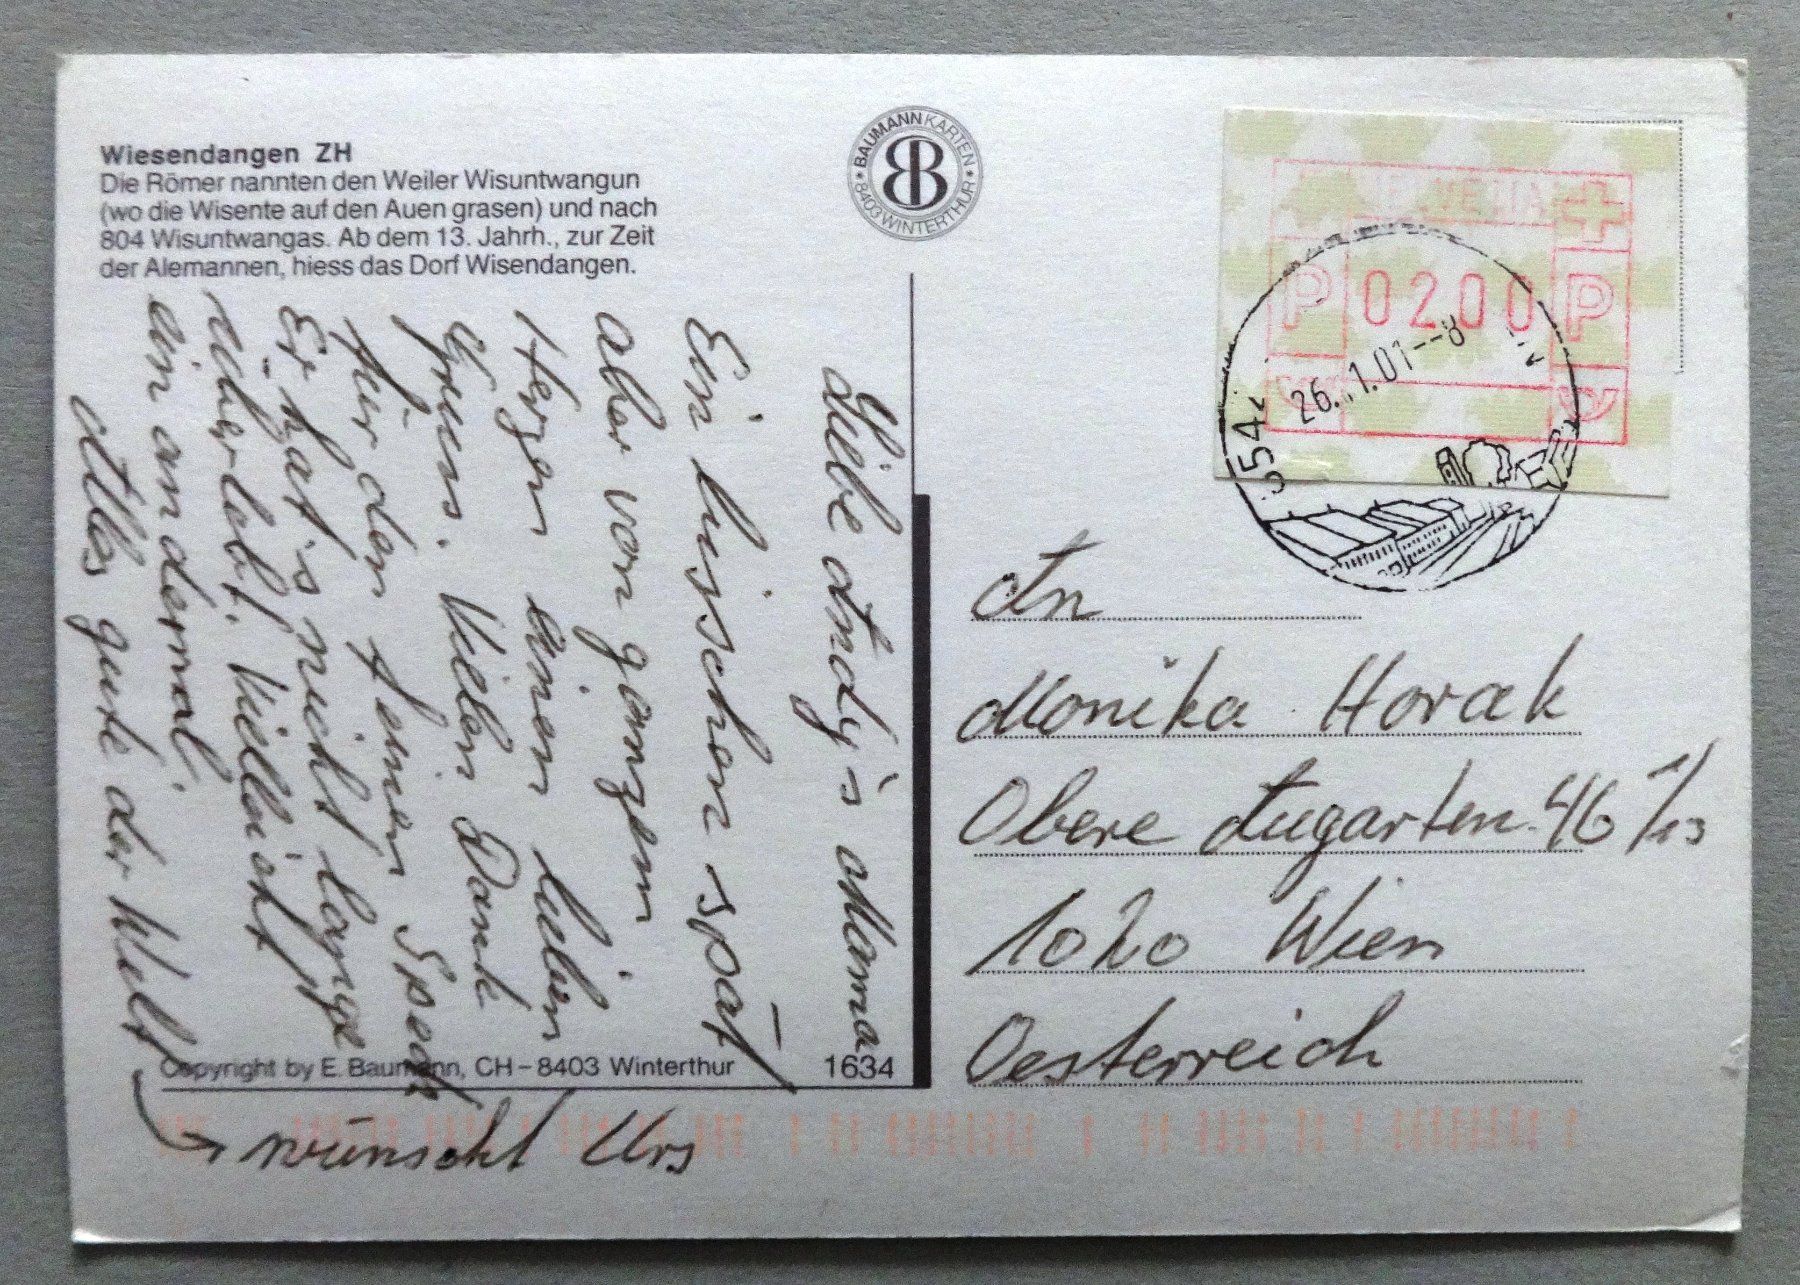 Wiesendangen ZH
Die Römer nannten den Weiler Wisuntwangun
(wo die Wisente auf den Auen grasen) und nach
804 Wisuntwangas. Ab dem 13. Jahrh., zur Zeit
der Alemannen, hiess das Dorf Wisendangen.
BAUMANNKARTEN
* 8403 WINTERTHUR *
B
HELVETIA
P 0200 P
26.1.01--8
Liebe Andy's Mama
Ein bisschen spät
aber von ganzem
Herzen einen lieben
Gruss. Vielen Dank
für den feinen Speck
Er hat's nicht lange
überlebt. Vielleicht
ein andermal.
Alles gute der Welt
wünscht Urs
An
Monika Horak
Obere Augarten. 46 1/13
1020 Wien
Oesterreich
Copyright by E. Baumann, CH-8403 Winterthur
1634